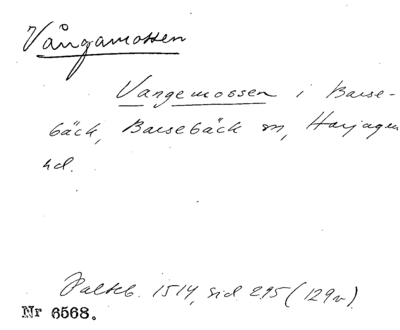 Vångamossen
Vangemossen i Barse-
bäck, Barsebäck sn, Harjagers
hd.
Palteb. 1514, sid 295 (129v).
Nr 6568.